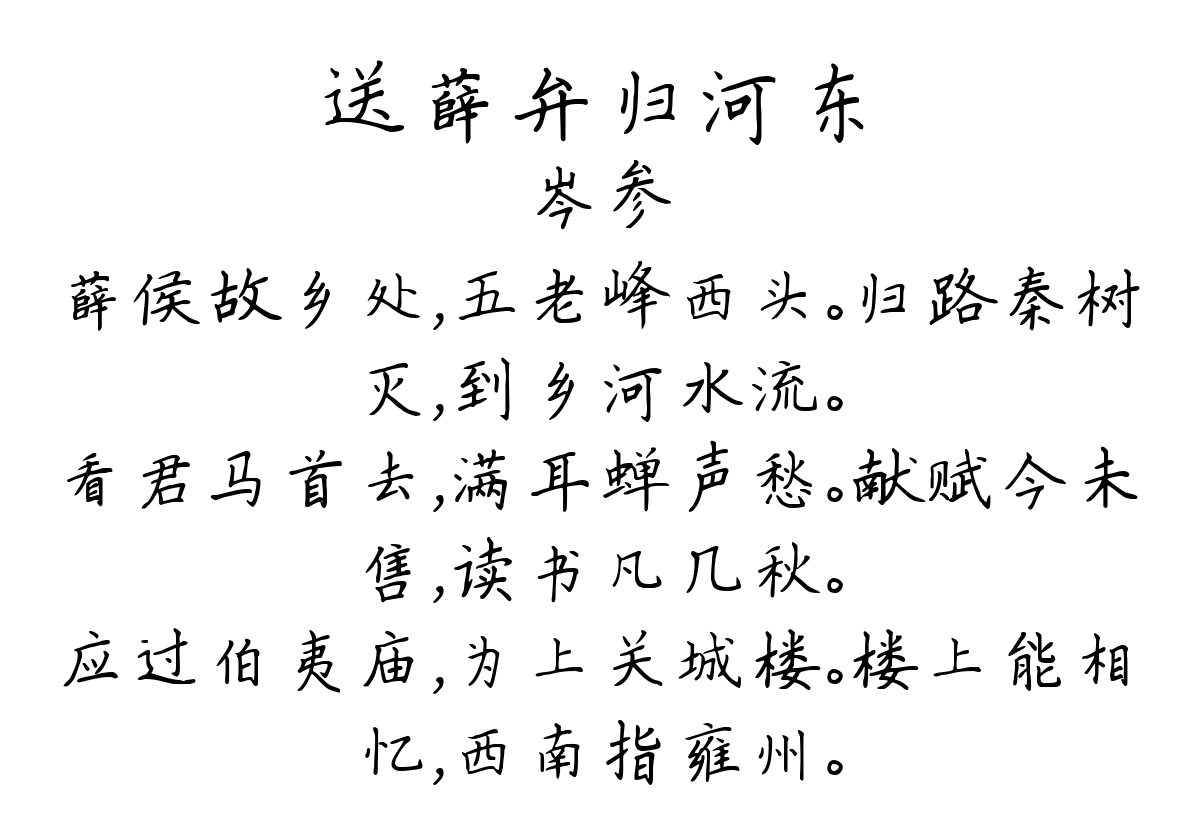 送薛弁归河东
岑参
薛侯故乡处,五老峰西头。归路秦树
灭,到乡河水流。
看君马首去,满耳蝉声愁。献赋今未
售,读书凡几秋。
应过伯夷庙,为上关城楼。楼上能相
忆,西南指雍州。